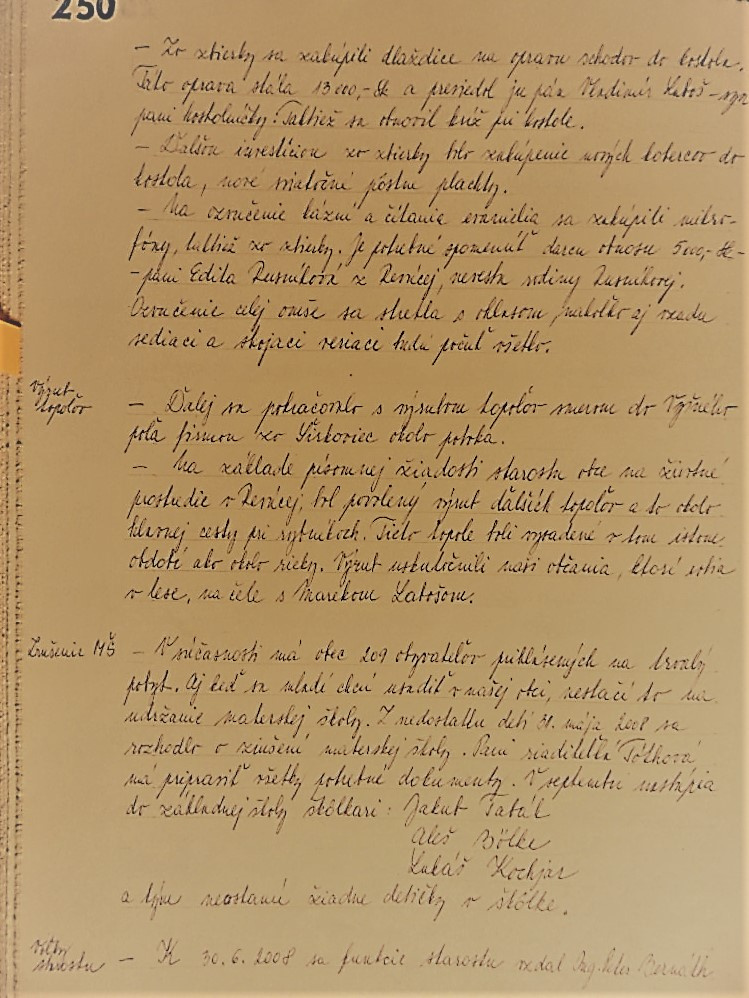 250
- Zo zbierky sa zakúpili dlaždice na opravu schodov do kostola.
Táto oprava stála 13 000,- Sk a previedol ju pán Vladimír Laboš - syn
pani kostolníčky. Taktiež sa obnovil kríž pri kostole.
- Ďalšou investíciou zo zbierky bolo zakúpenie nových kobercov do
kostola, nové sviatočné pôstne plachty.
- Na ozvučenie kázní a čítania evanjelia sa zakúpili mikro-
fóny, taktiež zo zbierky. Je potrebné spomenúť darcu obnosu 5000,- Sk -
- pani Edita Rusníková z Revúcej, nevesta rodiny Rusníkovej.
Ozvučenie celej omše sa stretla s ohlasom, nakoľko aj vzadu
sediaci a stojaci veriaci budú počuť všetko.
Výrub
topoľov
- Ďalej sa pokračovalo s výrubom topoľov smerom do Vyšného
poľa firmou zo Širkoviec okolo potoka.
- Na základe písomnej žiadosti starostu obce na životné
prostredie v Revúcej, bol povolený výrub ďalších topoľov a to okolo
hlavnej cesty pri rybníkoch. Tieto topole boli vysadené v tom istom
období ako okolo rieky. Výrub uskutočnili naši občania, ktorí robia
v lese, na čele s Marekom Labošom.
Zrušenie MŠ
- V súčasnosti má obec 209 obyvateľov prihlásených na trvalý
pobyt. Aj keď sa mladí chcú usadiť v našej obci, nestačí to na
udržanie materskej školy. Z nedostatku detí 31. mája 2008 sa
rozhodlo o zrušení materskej školy. Pani riaditeľka Tóthová
má pripraviť všetky potrebné dokumenty. V septembri nastúpia
do základnej školy škôlkari: Jakub Tabák
Aleš Bölke
Lukáš Kochjar
a tým neostanú žiadne detičky v škôlke.
Voľby
starostu
- K 30.6.2008 sa funkcie starostu vzdal Ing. Peter Bernáth